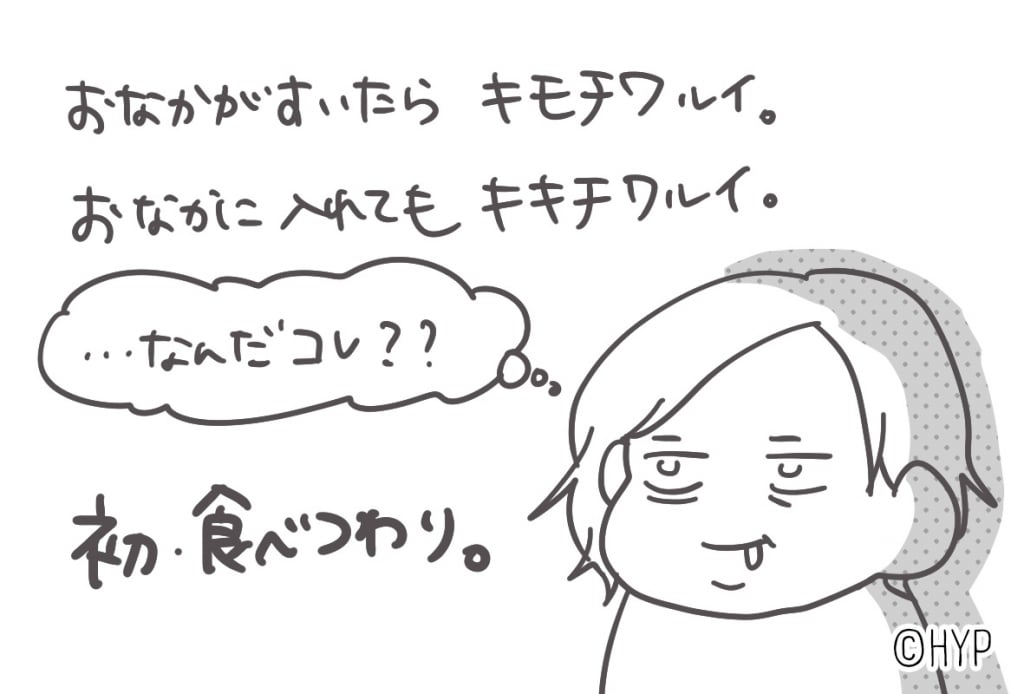 おなかがすいたら キモチワルイ。
おなかに入れても キキチワルイ。
…なんだコレ??
初・食べつわり。
©HYP